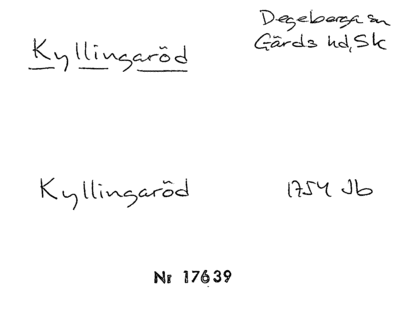 Degeberga sn
Gärds hd, Sk
Kyllingaröd
Kyllingaröd 1754 Jb
Nr 17639